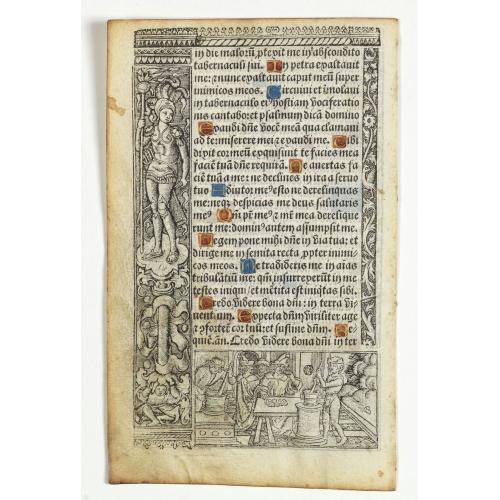 in die malorū: ꝓtexit me in abscondito
tabernaculi sui. In petra exaltauit
me: ⁊ nunc exaltauit caput meū super
inimicos meos. Circuiui et īmolaui
in tabernaculo eiꝰ hostiam vociferatio
nis cantabo: et psalmum dicā domino
Exaudi dn̄e vocē meā qua clamaui
ad te: miserere mei ⁊ exaudi me. Tibi
dixit cor meū exquisiuit te facies mea
faciē tuā dn̄e requirā. Ne auertas fa
ciē tuā a me: ne declines in ira a seruo
tuo Adiutor meꝰ esto ne derelinquas
me: neqꝫ despicias me deus salutaris
meꝰ Qm̄ pr̄ meꝰ ⁊ mr̄ mea dereliqūe
runt me: dominꝰ autem assumpsit me.
Legem pone mihi dn̄e in via tua: et
dirige me in semita recta, ꝓpter inimi
cos meos. Ne tradideris me in aīas
tribulātiū me: qm̄ insurrexerūt in me
testes iniqui / et mētita est iniqtas sibi.
Credo videre bona dn̄i: in terra vi
uentium. Expecta dn̄m viriliter age
⁊ ꝯfortet᷑ cor tuū: et sustine dn̄m. Re
quiē. an̄. Credo videre bona dn̄i in ter